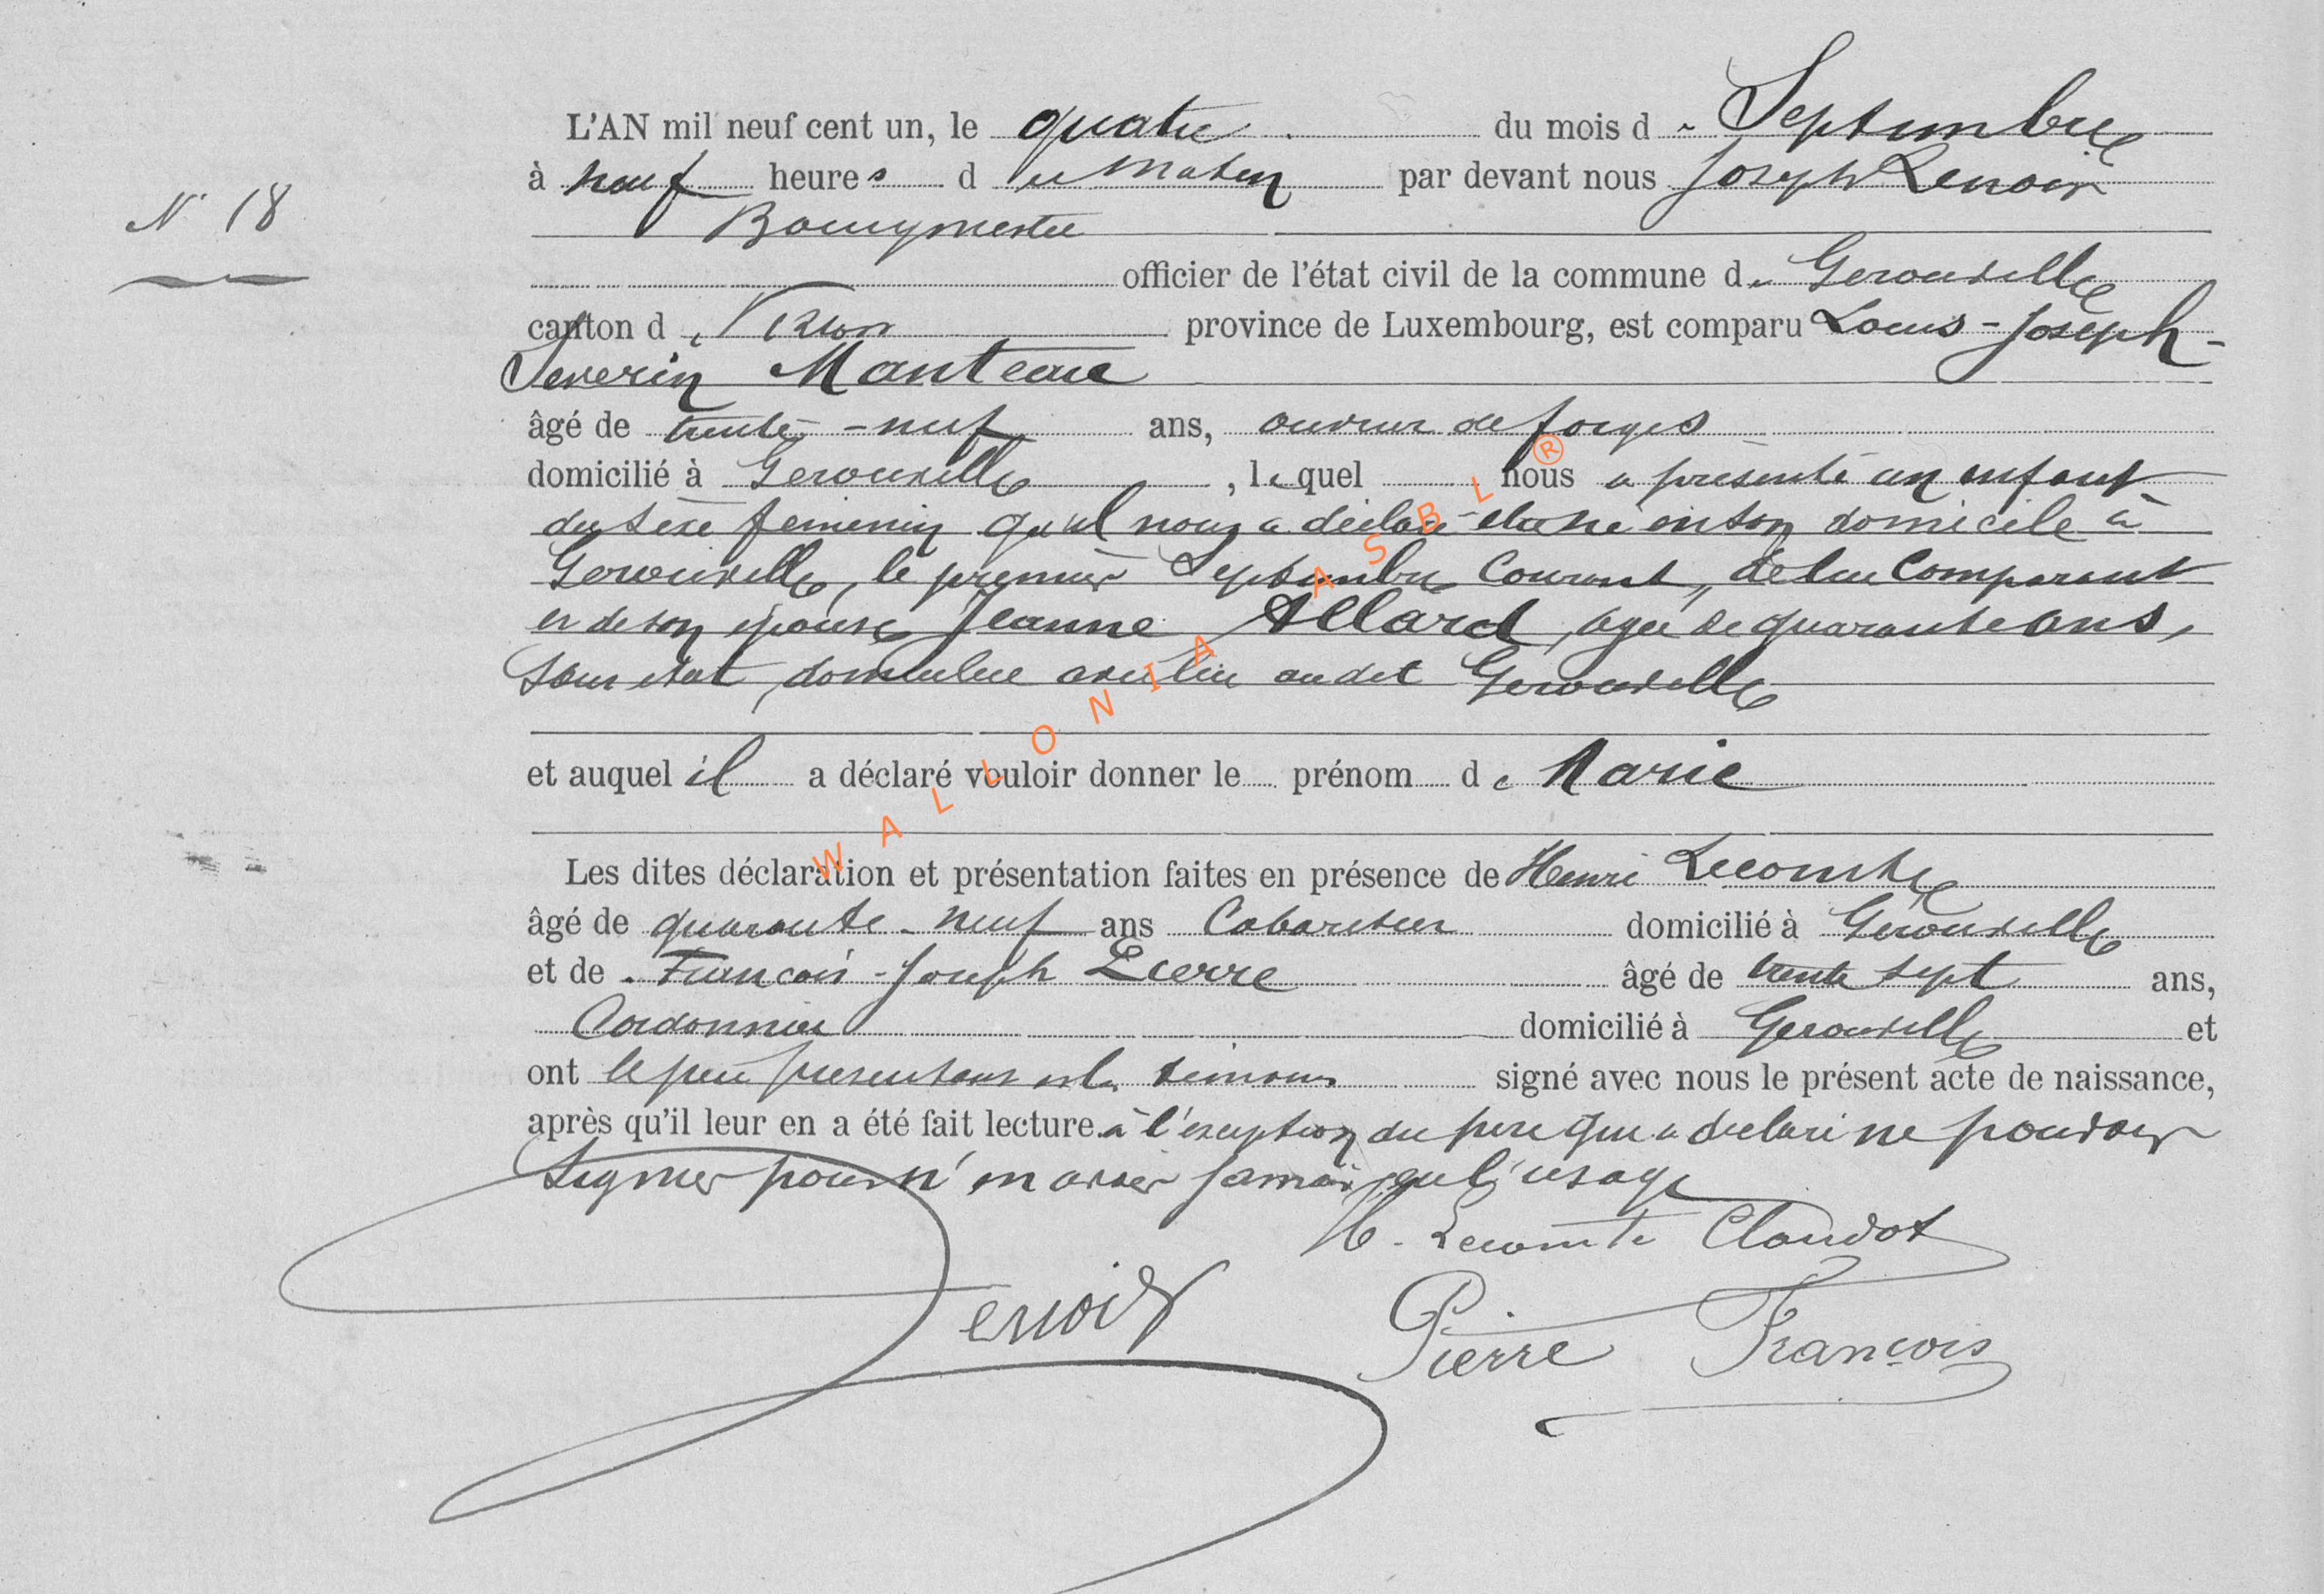 L'AN mil neuf cent un, le quatre du mois de Septembre
à neuf heures du matin par devant nous Joseph Lenoir
N° 18
Bourgmestre
officier de l'état civil de la commune de Gerouville
canton de Virton province de Luxembourg, est comparu Louis-Joseph-
Severin Manteau
âgé de trente-neuf ans, ouvrier de forges
domicilié à Gerouville, lequel nous a présenté un enfant
du sexe feminin qu'il nous a déclaré être né en son domicile à
Gerouville, le premier Septembre courant, de lui Comparant
et de son épouse Jeanne Allard, agée de quarante ans,
sans état, domiciliée avec lui audit Gerouville
et auquel il a déclaré vouloir donner le prénom de Marie
Les dites déclaration et présentation faites en présence de Henri Lecomte
âgé de quarante-neuf ans Cabaretier domicilié à Gerouville
et de François-Joseph Pierre âgé de trente sept ans,
Cordonnier domicilié à Gerouville et
ont le père présentant et les témoins signé avec nous le présent acte de naissance,
après qu'il leur en a été fait lecture à l'exception du père qui a déclaré ne pouvoir
signer pour n'en avoir jamais eu l'usage
H. Lecomte Claudot
Lenoir
Pierre François
WALLONIA ASBL ®